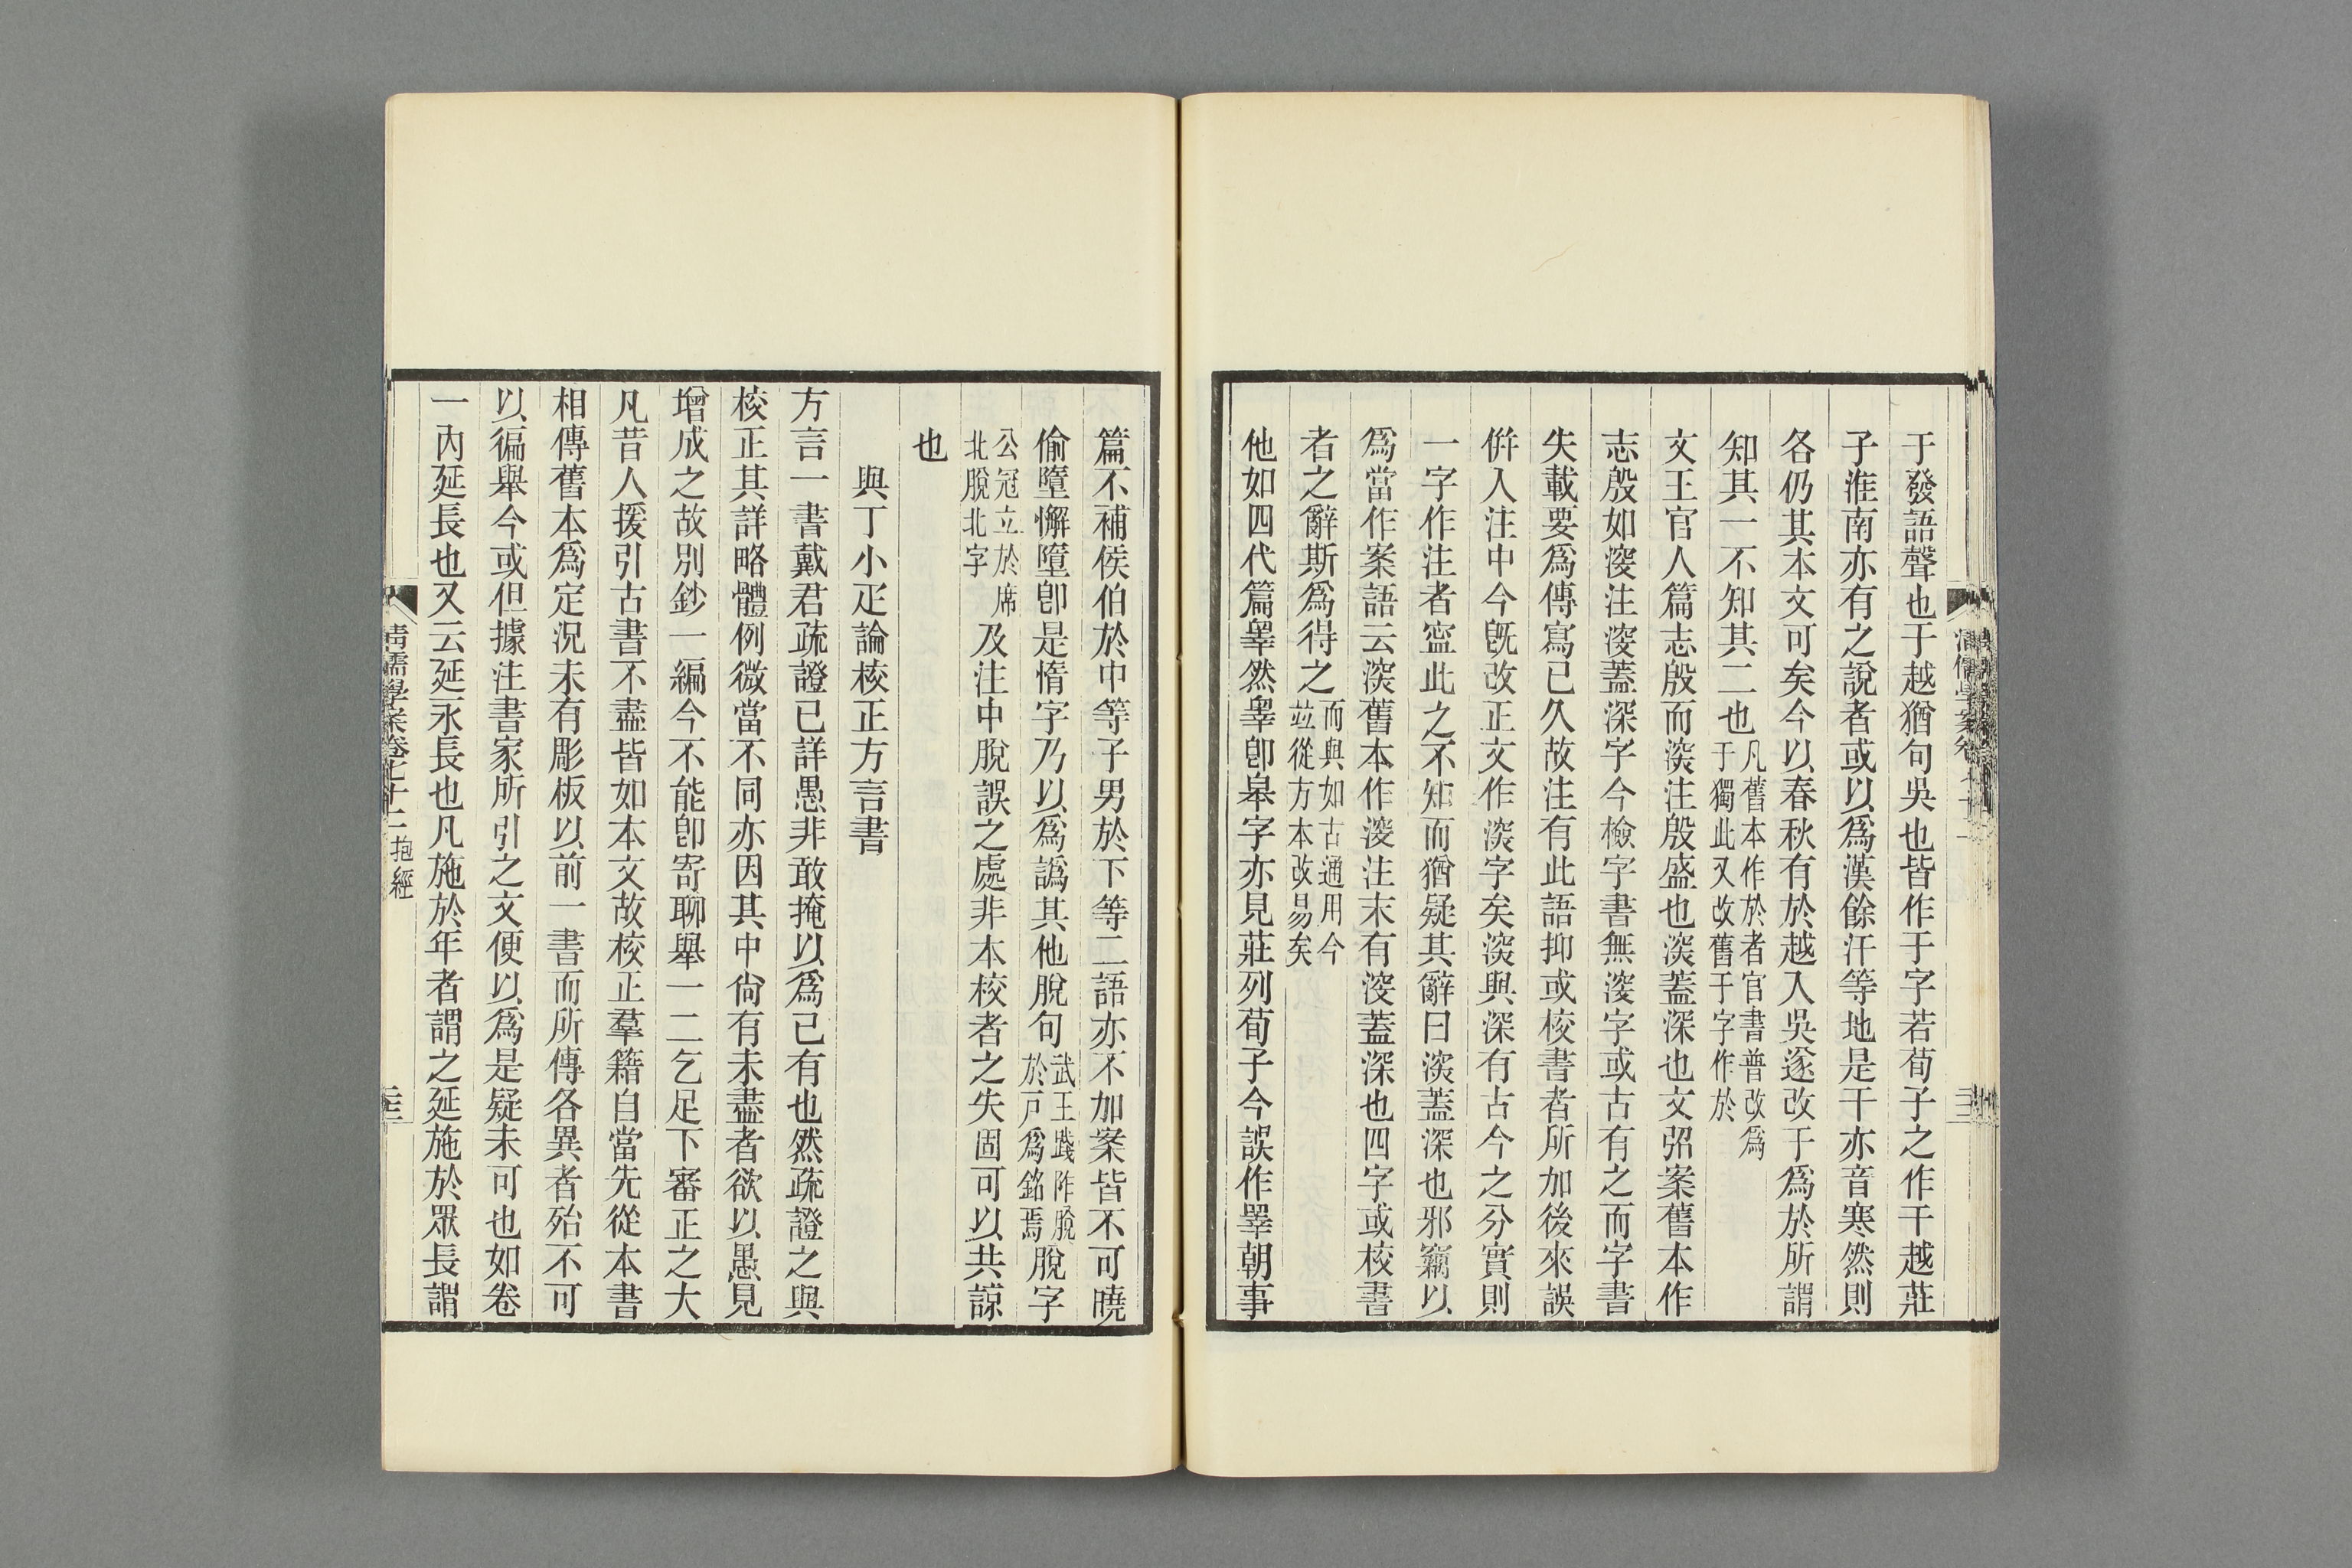 于發語聲也于越猶句吳也皆作于字若荀子之作干越莊
子淮南亦有之說者或以爲漢餘汗等地是干亦音寒然則
各仍其本文可矣今以春秋有於越入吳遂改于爲於所謂
知其一不知其二也凡舊本作於者官書普改爲于獨此又改舊于字作於
文王官人篇志殷而湥注殷盛也湥蓋深也文弨案舊本作
志殷如㴆注㴆蓋深字今檢字書無㴆字或古有之而字書
失載要爲傳寫已久故注有此語抑或校書者所加後來誤
倂入注中今旣改正文作湥字矣湥與深有古今之分實則
一字作注者寍此之不知而猶疑其辭曰湥蓋深也邪竊以
爲當作案語云湥舊本作㴆注末有㴆蓋深也四字或校書
者之辭斯爲得之而與如古通用今竝從方本改易矣
他如四代篇睾然睾卽皋字亦見莊列荀子今誤作睪朝事
篇不補侯伯於中等子男於下等二語亦不加案皆不可曉
偷墮懈墮卽是惰字乃以爲譌其他脫句武王踐阼脫於戸爲銘焉脫字
公冠立於席北脫北字及注中脫誤之處非本校者之失固可以共諒
也
與丁小疋論校正方言書
方言一書戴君疏證已詳愚非敢掩以爲己有也然疏證之與
校正其詳略體例微當不同亦因其中尙有未盡者欲以愚見
增成之故別鈔一編今不能卽寄聊舉一二乞足下審正之大
凡昔人援引古書不盡皆如本文故校正羣籍自當先從本書
相傳舊本爲定況未有彫板以前一書而所傳各異者殆不可
以徧舉今或但據注書家所引之文便以爲是疑未可也如卷
一內延長也又云延永長也凡施於年者謂之延施於眾長謂
清儒學案卷七十二 抱經